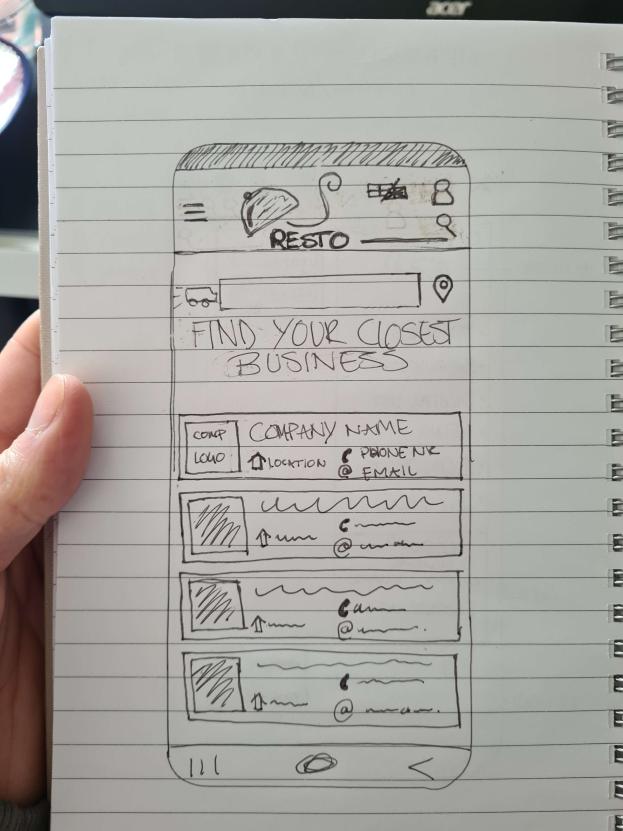 acer
RESTO
FIND YOUR CLOSEST
BUSINESS
COMP
LOGO
COMPANY NAME
LOCATION
PHONE NR
@ EMAIL
@
@
@